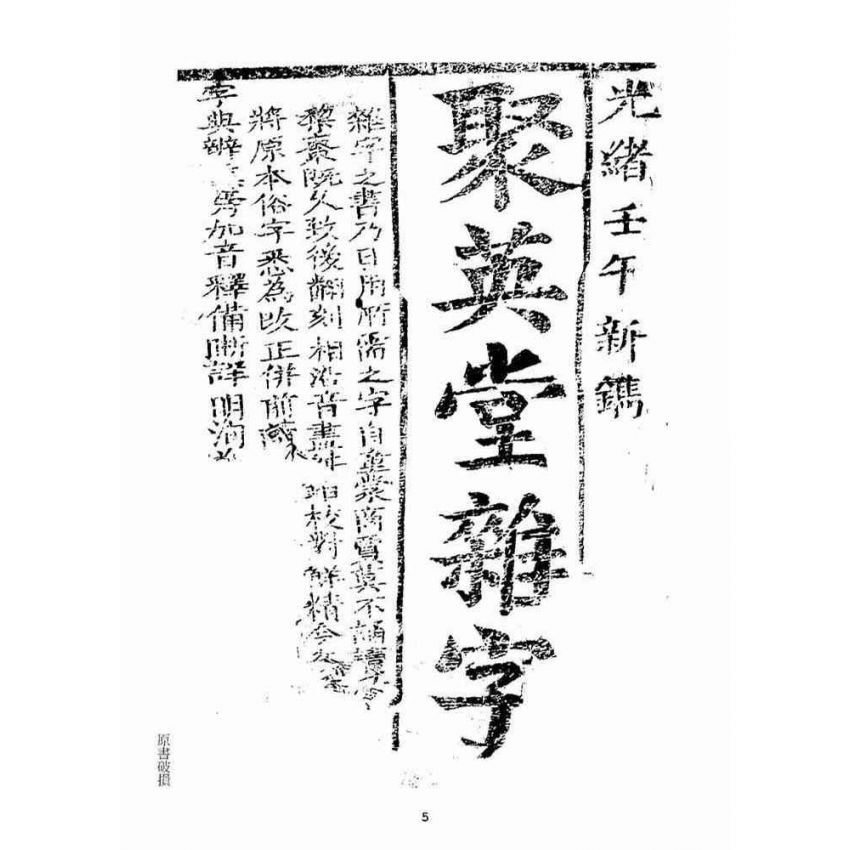 光緒壬午新鐫
聚英堂雜字
雜字之書乃日用所需之字自童蒙商賈莫不誦讀
棃棗既久致後翻刻相沿音畫 校對鮮精今
將原本俗字悉為改正併前
字典辨 旁加音釋備晰詳明洵
原書破損
5